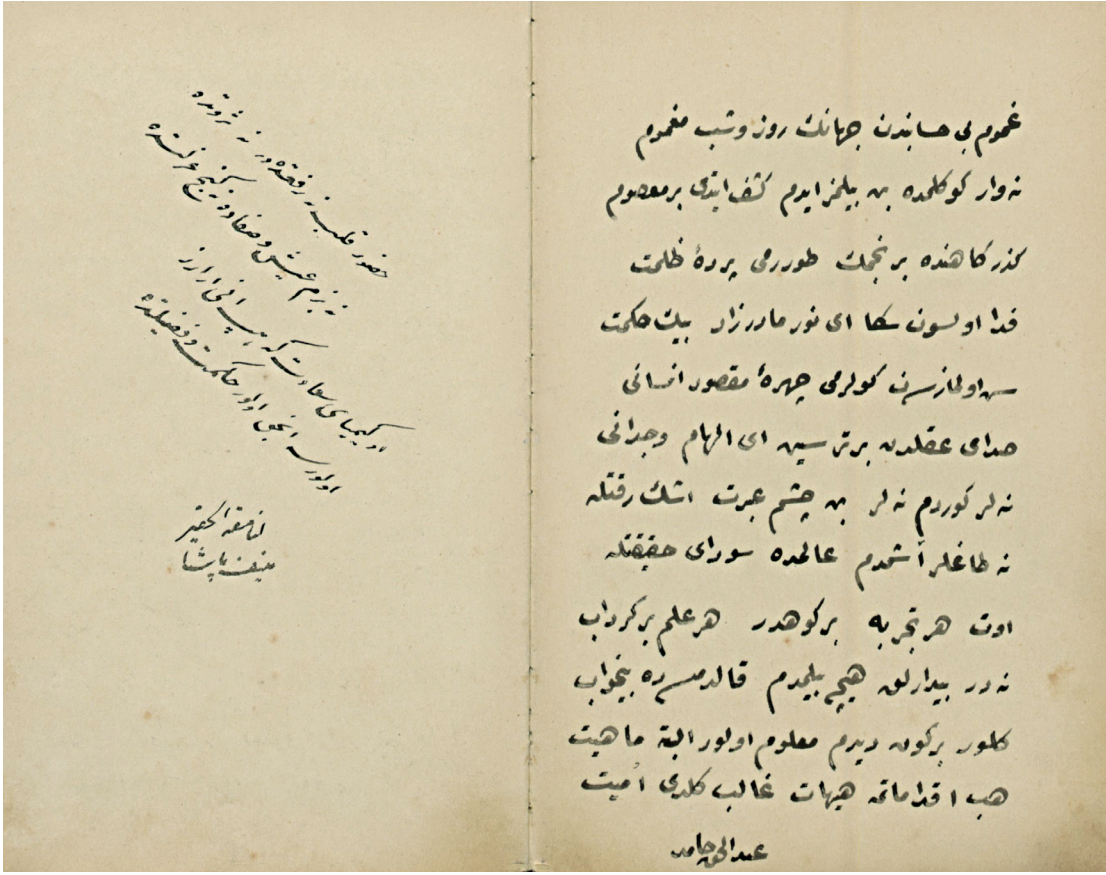 غموم بی حسابندن جهانك روز و شب مغموم
نه وار كوكلمده بن بيلمز ايدم كشف ايتدی بر معصوم
كذركاهنده بر نجمك طوررمی پردهٔ ظلمت
فدا اولسون سكا ای نور مادرزاد بيك حكمت
سن اولمازسه ك كولرمی چهرهٔ مقصود انسانی
صدای عقلدن برترسين ای الهام وجدانی
نه لر كوردم نه لر بن چشم عبرت اشك رقتله
نه طاغلر آشمدم عالمده سودای حقيقتله
اوت هر تجربه بر كوهدر هر علم بر كرداب
نه در بيدارلق هيچ بيلمدم قالدمسه ده بيخواب
كلور بركون ديردم معلوم اولور البته ماهيت
هب اقداماتمه هيهات غالب كلدی اُميت
عبدالحق حامد
حضور قلب نه رفعتده در نه ثروتده
نه بزم عيش و صفاده نه كنج عزلتده
او كيميای سعادت كه هپ انی ارارز
اولورسه انجق اولور حكمت و فضيلتده
لنامقه الحقير
منيف پاشا